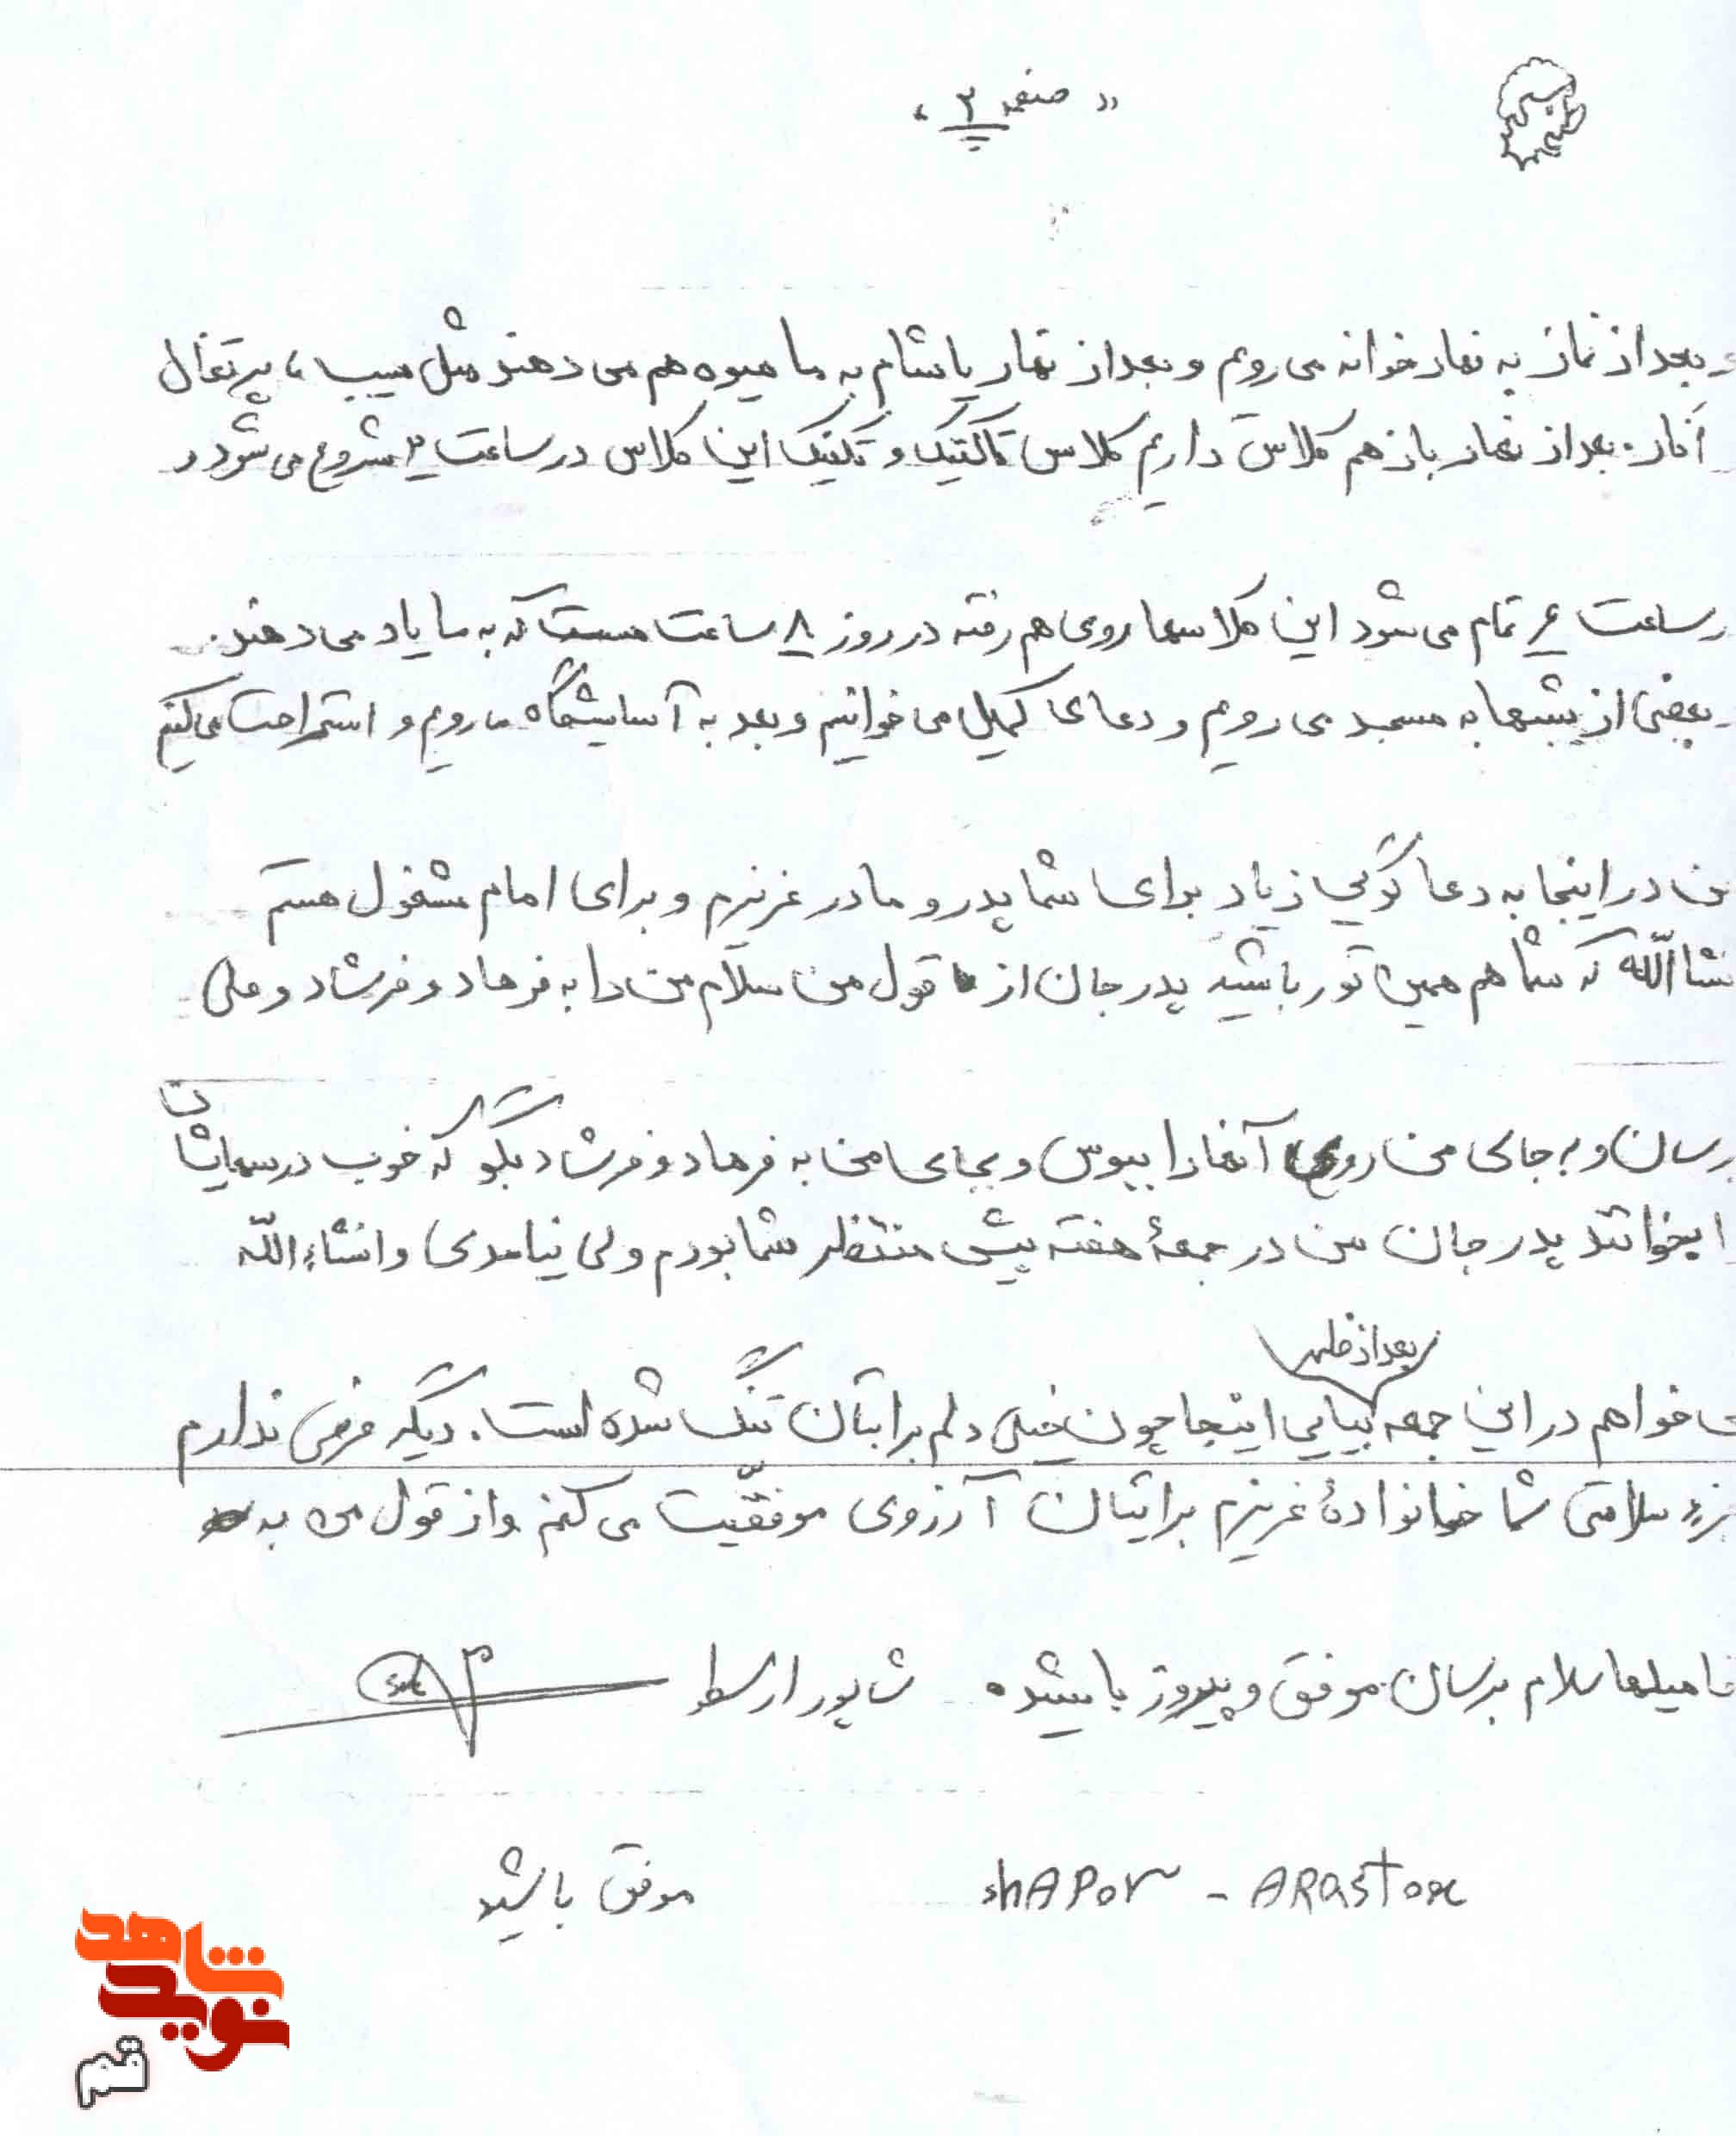 « صفحه ۳ »
و بعد از نماز به نهار خوانه می رویم و بعد از نهار یا شام به ما میوه هم می دهند مثل سیب ، پرتغال
آنار . بعد از نهار باز هم کلاس داریم کلاس تاکتیک و تکنیک این کلاس در ساعت ۲ شروع می شود و
ساعت ۶ تمام می شود این کلاسها روی هم رفته در روز ۸ ساعت هست که به ما یاد می دهند .
بعضی از شبها به مسجد می رویم و دعای کمیل می خوانیم و بعد به آسایشگاه می رویم و استراحت می کنیم
من در اینجا به دعا گویی زیاد برای شما پدر و مادر عزیزم و برای امام مشغول هستم
نشاالله که شما هم همین تور باشید پدر جان از قول من سلام من را به فرهاد و فرشاد و علی
برسان و به جای من روی آنها را ببوس و بجای من به فرهاد و فرشاد بگو که خوب درسهایشان
را بخوانند پدر جان من در جمعهٔ هفته پیش منتظر شما بودم ولی نیامدی و انشاءالله
بعد از ظهر
می خواهم در این جمعه بیایی اینجا چون خیلی دلم برایتان تنگ شده است . دیگر عرضی ندارم
بزء سلامتی شما خانوادهٔ عزیزم برایتان آرزوی موفقیّت می کنم و از قول من به
فامیلها سلام برسان . موفق و پیروز باشید . شاپور ارسطو
shAPor - ARASToo موفق باشید
شاهد
نوید
قم